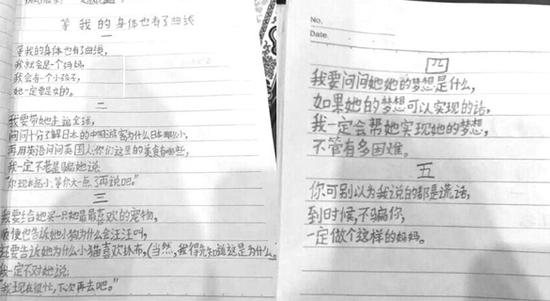 等我的身体也有了曲线
一
等我的身体也有了曲线,
我就会是一个妈妈,
我会有一个小孩子,
她一定要是女的。
二
我要带她走遍全球,
问问十分了解日本的中国游客为什么日本那么小,
再用英语问问英国人你们这里的美食有哪些,
我一定不老是骗她说
你现在还小,等你大一点了再说吧。”
三
我要给她买一只她最喜欢的宠物,
顺便也告诉她小狗为什么会汪汪叫,
还要告诉她为什么小猫喜欢球布,(当然,我得先知道这是为什么。
我一定不对她说
我现在很忙,下次再去吧。”
No.
Date.
四
我要问问她她的梦想是什么,
如果她的梦想可以实现的话,
我一定会帮她实现她的梦想,
不管有多困难。
五
你可别以为我说的都是谎话,
到时候,不骗你,
一定做个这样的妈妈。